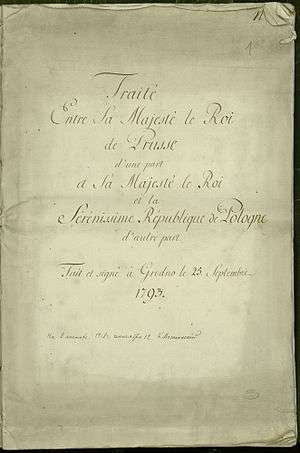 Traité
Entre Sa Majesté le Roi
de Prusse
d'une part
et Sa Majesté le Roi
et la
Sérénissime Republique de Pologne
d'autre part.
Fait et signé à Grodno le 25. Septembre
1793.